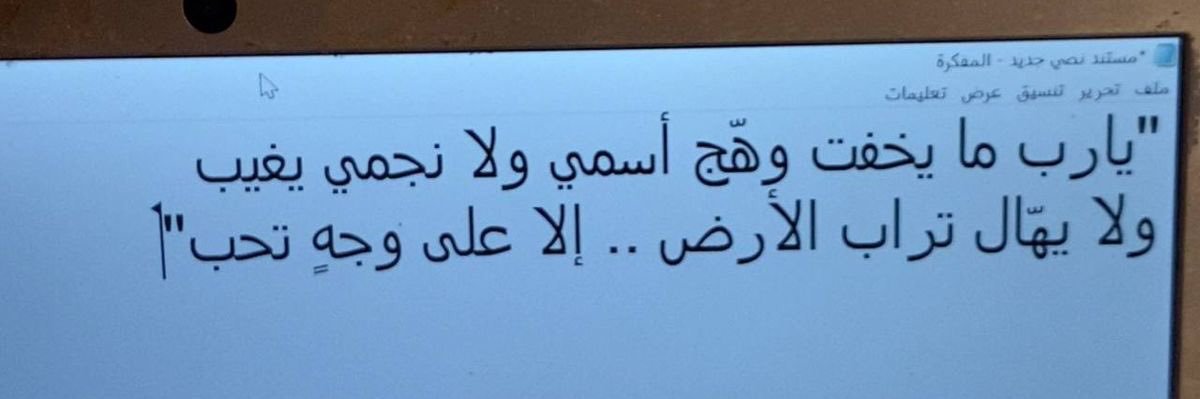 *مستند نصي جديد - المفكرة
ملف تحرير تنسيق عرض تعليمات
"يارب ما يخفت وهّج أسمي ولا نجمي يغيب
ولا يهّال تراب الأرض .. إلا على وجهٍ تحب"